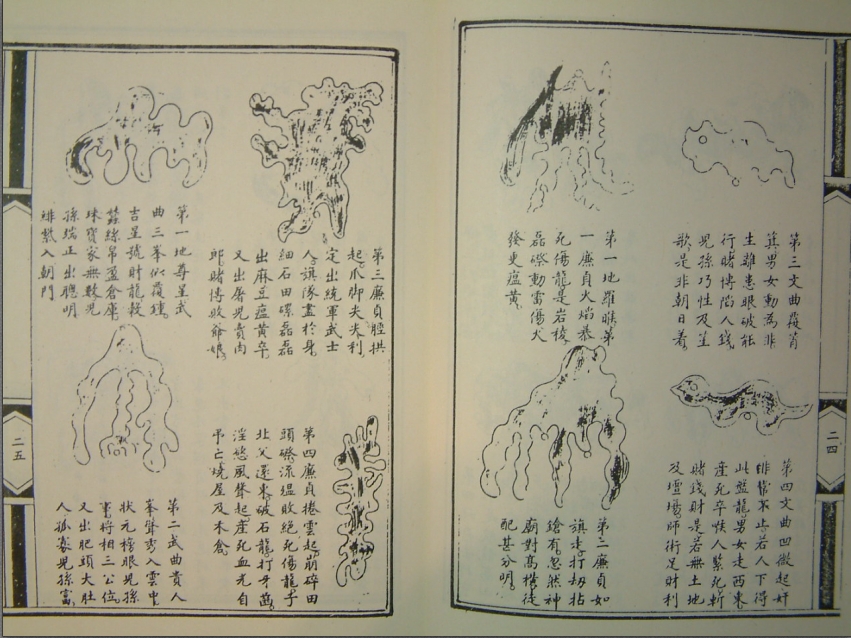 二四
第三文曲覆肖
箕男女動為非
生雖患眼破能
行賭博陷人錢
児孫巧性及笙
歌是非朝日着
第四文曲凹微起奸
不步若人下得
此盤龍男女走西東
產死卒人死斬
賭錢財是若無土地
及壇場師術足財利
第一地羅睺第
一廉貞火焰
死傷龍是岩稜
磊磔動雷傷犬
發更瘟黄
第二廉貞如
旗走打刼拈
鎗有忽然神
廟對高樓徒
配甚分明
二五
第三廉貞拱
起爪脚尖夫利
定出統軍武士
人旗隊畫於身
細石田磔磊磊
出麻豆瘟黄卒
又出屠児賣肉
郎賭博敗爺娘
第四廉貞捲雲起崩碎田
頭磔流瘟敗絕死傷龍乎
北父還來破石龍打牙
淫慾風聲起產死血光自
弔亡燒屋及禾倉
第一地尊星武
曲三峯似覆鐘
吉星號財龍穀
蚕絲帛盈倉庫
珠寳家無数児
孫端正出聰明
緋紫入朝門
第二武曲貴人
峯聳秀入雲中
狀元榜眼児孫
事將相三公位
又出肥頭大肚
人孤寡児孫富